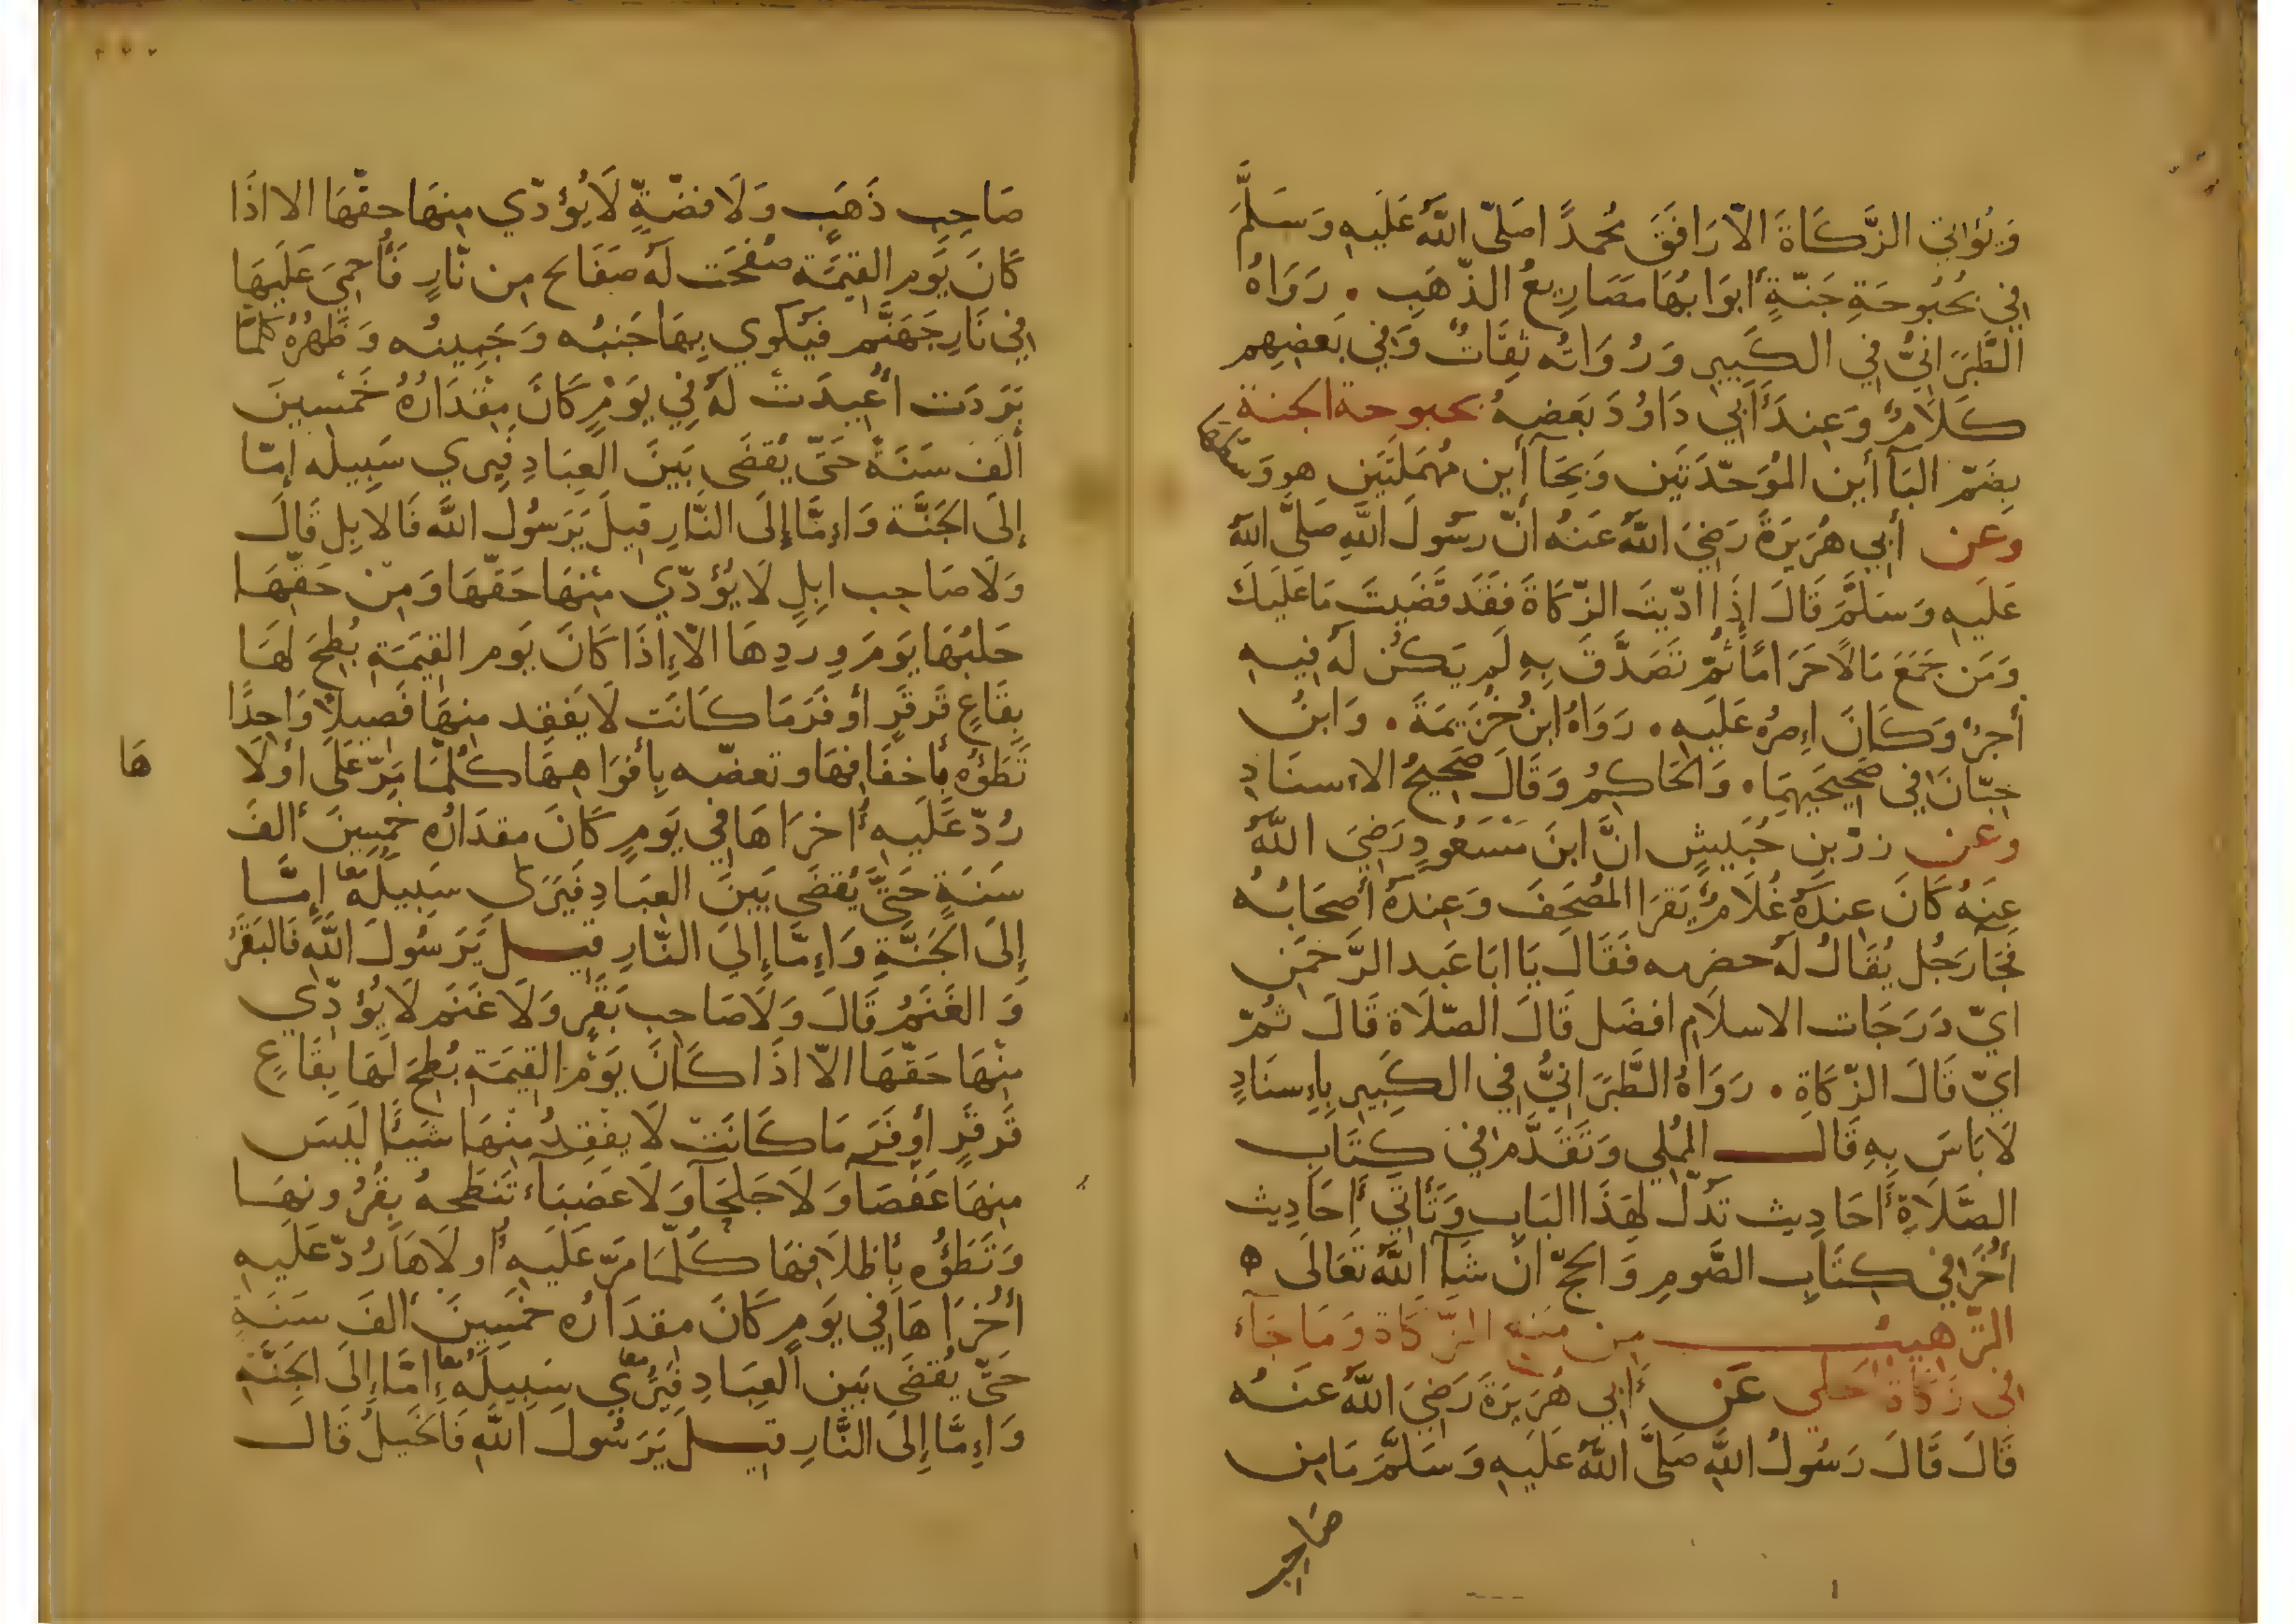 وَيُؤاتي الزَّكَاةَ الاّ رَافَقَ مُحمدً اصَلىّ اللّهُ عَلَيهِ وَسَلَّمَ
في بُحُبُوحَةِ جَنّةٍ أبوَابُهَا مَصَارِيعُ الذّهَبِ . رَوَاهُ
الطَّبَرَانيُّ في الكَبِيرِ وَرُوَاتُه ثِقَاتٌ وَفي بَعضِهِم
كَلَامٌ وَعِندَ أبي دَاوُدَ بَعَضِهُ بحبوحة الجنة
بِضَمّ البَآأين المُوَحّدَتَين وَبحَآأين مُهمَلَتَينِ هو وَسَطها
وعن أبي هُرَيرَةَ رَضيَ اللّهُ عَنهُ انّ رسُولَ اللّهِ صَلىَّ اللّهُ
عَلَيهِ وَسَلَّمَ قَالَ إذَا ادّيتَ الزّكَاةَ فَقَد قَضَيتَ مَا عَلَيكَ
وَمَن جَمَعَ مَالًا حَرَامًا ثُمّ تَصَدَّقَ بِهِ لَم يَكُن لَهُ فِيهِ
أجرٌ وَكَانَ اِصرُه عَلَيهِ . رَوَاهُ ابنُ خُزَيمَةَ . وَابنُ
حِبّانَ في صَحِيحَيهِمَا . وَالحَاكِمُ وَقَالَ صَحِيحُ الاسنَادِ
وعن زرّ بنِ حُبَيشٍ انَّ ابنَ مَسَعُودٍ رَضيَ اللّهُ
عَنهُ كَانَ عِندَهُ غُلَامٌ يَقرَا المُصحَفَ وَعِندَهُ أصحَابُه
فَجَآ رَجُل يُقَالُ لَه حضرمه فَقَالَ يَا ابَا عَبد الرَّحمَنِ
ايّ دَرَجَات الاسلَام افضَل قَالَ الصّلَاة قَالَ ثُمّ
ايّ قَالَ الزّكَاةِ . رَوَاهُ الطَّبَرَانيُّ في الكَبِيرِ بِاِسنَادٍ
لَا بَاسَ بِهِ قَالَ المُلي وَتَقَدَّم في كِتَابِ
الصَّلَاةِ أحَادِيث تَدلّ لِهَذَا البَابِ وَتَأتي أحَادِيث
أُخرَا في كِتَابِ الصَّومِ وَالحَجّ انَ شَآ اللّهُ تَعَالَى ه
التّرهيبُ من مَنع الزّكَاة وَمَا جَآءَ
في زَكَاة الحُلي عَن أبي هُرَيرَةَ رَضيَ اللّهُ عَنهُ
قَالَ قَالَ رَسُولُ اللّهِ صَلىَّ اللّهُ عَلَيهِ وَسَلَّمَ مَا مِن
صَاحِبِ
صَاحِبِ ذَهَبٍ وَلَا فضّةٍ لَا يُؤدّي منهَا حقّهَا الا اذَا
كَانَ يَوم القِيَمَة صُفحَت لَهُ صَفَايح من نّارٍ فَأُحمِيَ عَلَيهَا
في نَارِ جَهَنَّم فَيكوي بِهَا جَنبُه وَجَبِينُه وَظَهرُهُ كُلَّمَا
بَرَدَت أُعِيدَت لَهُ في يَوْمٍ كَانَ مِقدَارُهُ خَمسِينَ
ألف سَنَةً حَتّى يُقضَى بَينَ العِبَادِ فَيرِي سَبِيلَه إمّا
إلَى الجَنَّة وَاِمَّا إلَى النَّارِ قِيلَ يَرَسُولَ اللَّه فَالابِل قَالَ
وَلَا صَاحِب ابِلٍ لَا يُؤدّي مِنهَا حَقّهَا وَمِنْ حَقِّهَا
حَلبُهَا يَومَ وِردِهَا الاّ إِذَا كَانَ يَوم القِيَمَةِ بُطِحَ لَهَا
بِقَاعٍ قَرقَرٍ أوفَرَ مَا كَانَت لَا يَفقِد منهَا فَصِيلًا وَاحِدًا
تَطَؤُه بأخفَافِهَا وتعضّه بِأفوَاهِهَا كُلَّمَا مَرّ عَلَى أولَا هَا
رُدّ عَلَيهِ أُخرَاهَا في يَومٍ كَانَ مِقدَارُه خَمسِينَ ألفَ
سَنَةٍ حَتَّى يُقضَى بَينَ العِبَادِ فَيَرَى سَبِيلَهُ معا إمَّا
إلىَ الجَنَّةِ وَاِمَّا إلىَ النَّارِ قِيلَ يَرَسُولَ اللّهِ فَالبَقَرُ
وَالغَنَمُ قَالَ وَلَا صَاحِب بَقَرٍ وَلَا غَنَم لَا يُؤدّي
مِنهَا حَقّهَا الاّ اذَا كَانَ يَوْمُ القِيَمَةِ بُطِحَ لَهَا بِقَاعٍ
قَرقَرٍ أوفَرَ مَا كَانَتْ لَا يفقِدُ مِنهَا شَيئًا لَيسَ
مِنهَا عَقصَا وَلَا جَلحَا وَلَا عَضبَاء تَنطحهُ بِقُرُونِهَا
وَتَطَؤُه بِأظلَافِهَا كُلَّمَا مَرّ عَلَيهِ أُولَاهَا رُدّ عَلَيهِ
أُخرَاهَا في يَومٍ كَانَ مقدَارُه خَمسِينَ ألفَ سَنَةٍ
حَتّى يُقضَى بَين العِبَادِ فَيُرَى معا سَبِيلَهُ معا إمّا إِلَى الجَنَّةِ
وَاِمَّا إِلَى النَّارِ قِيلَ يَرَسُولَ اللّهِ فَالخَيلُ قَالَ